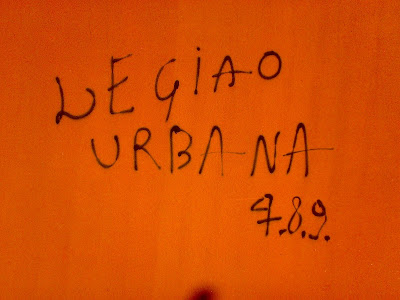 LEGIAO
URBANA
7.8.9.